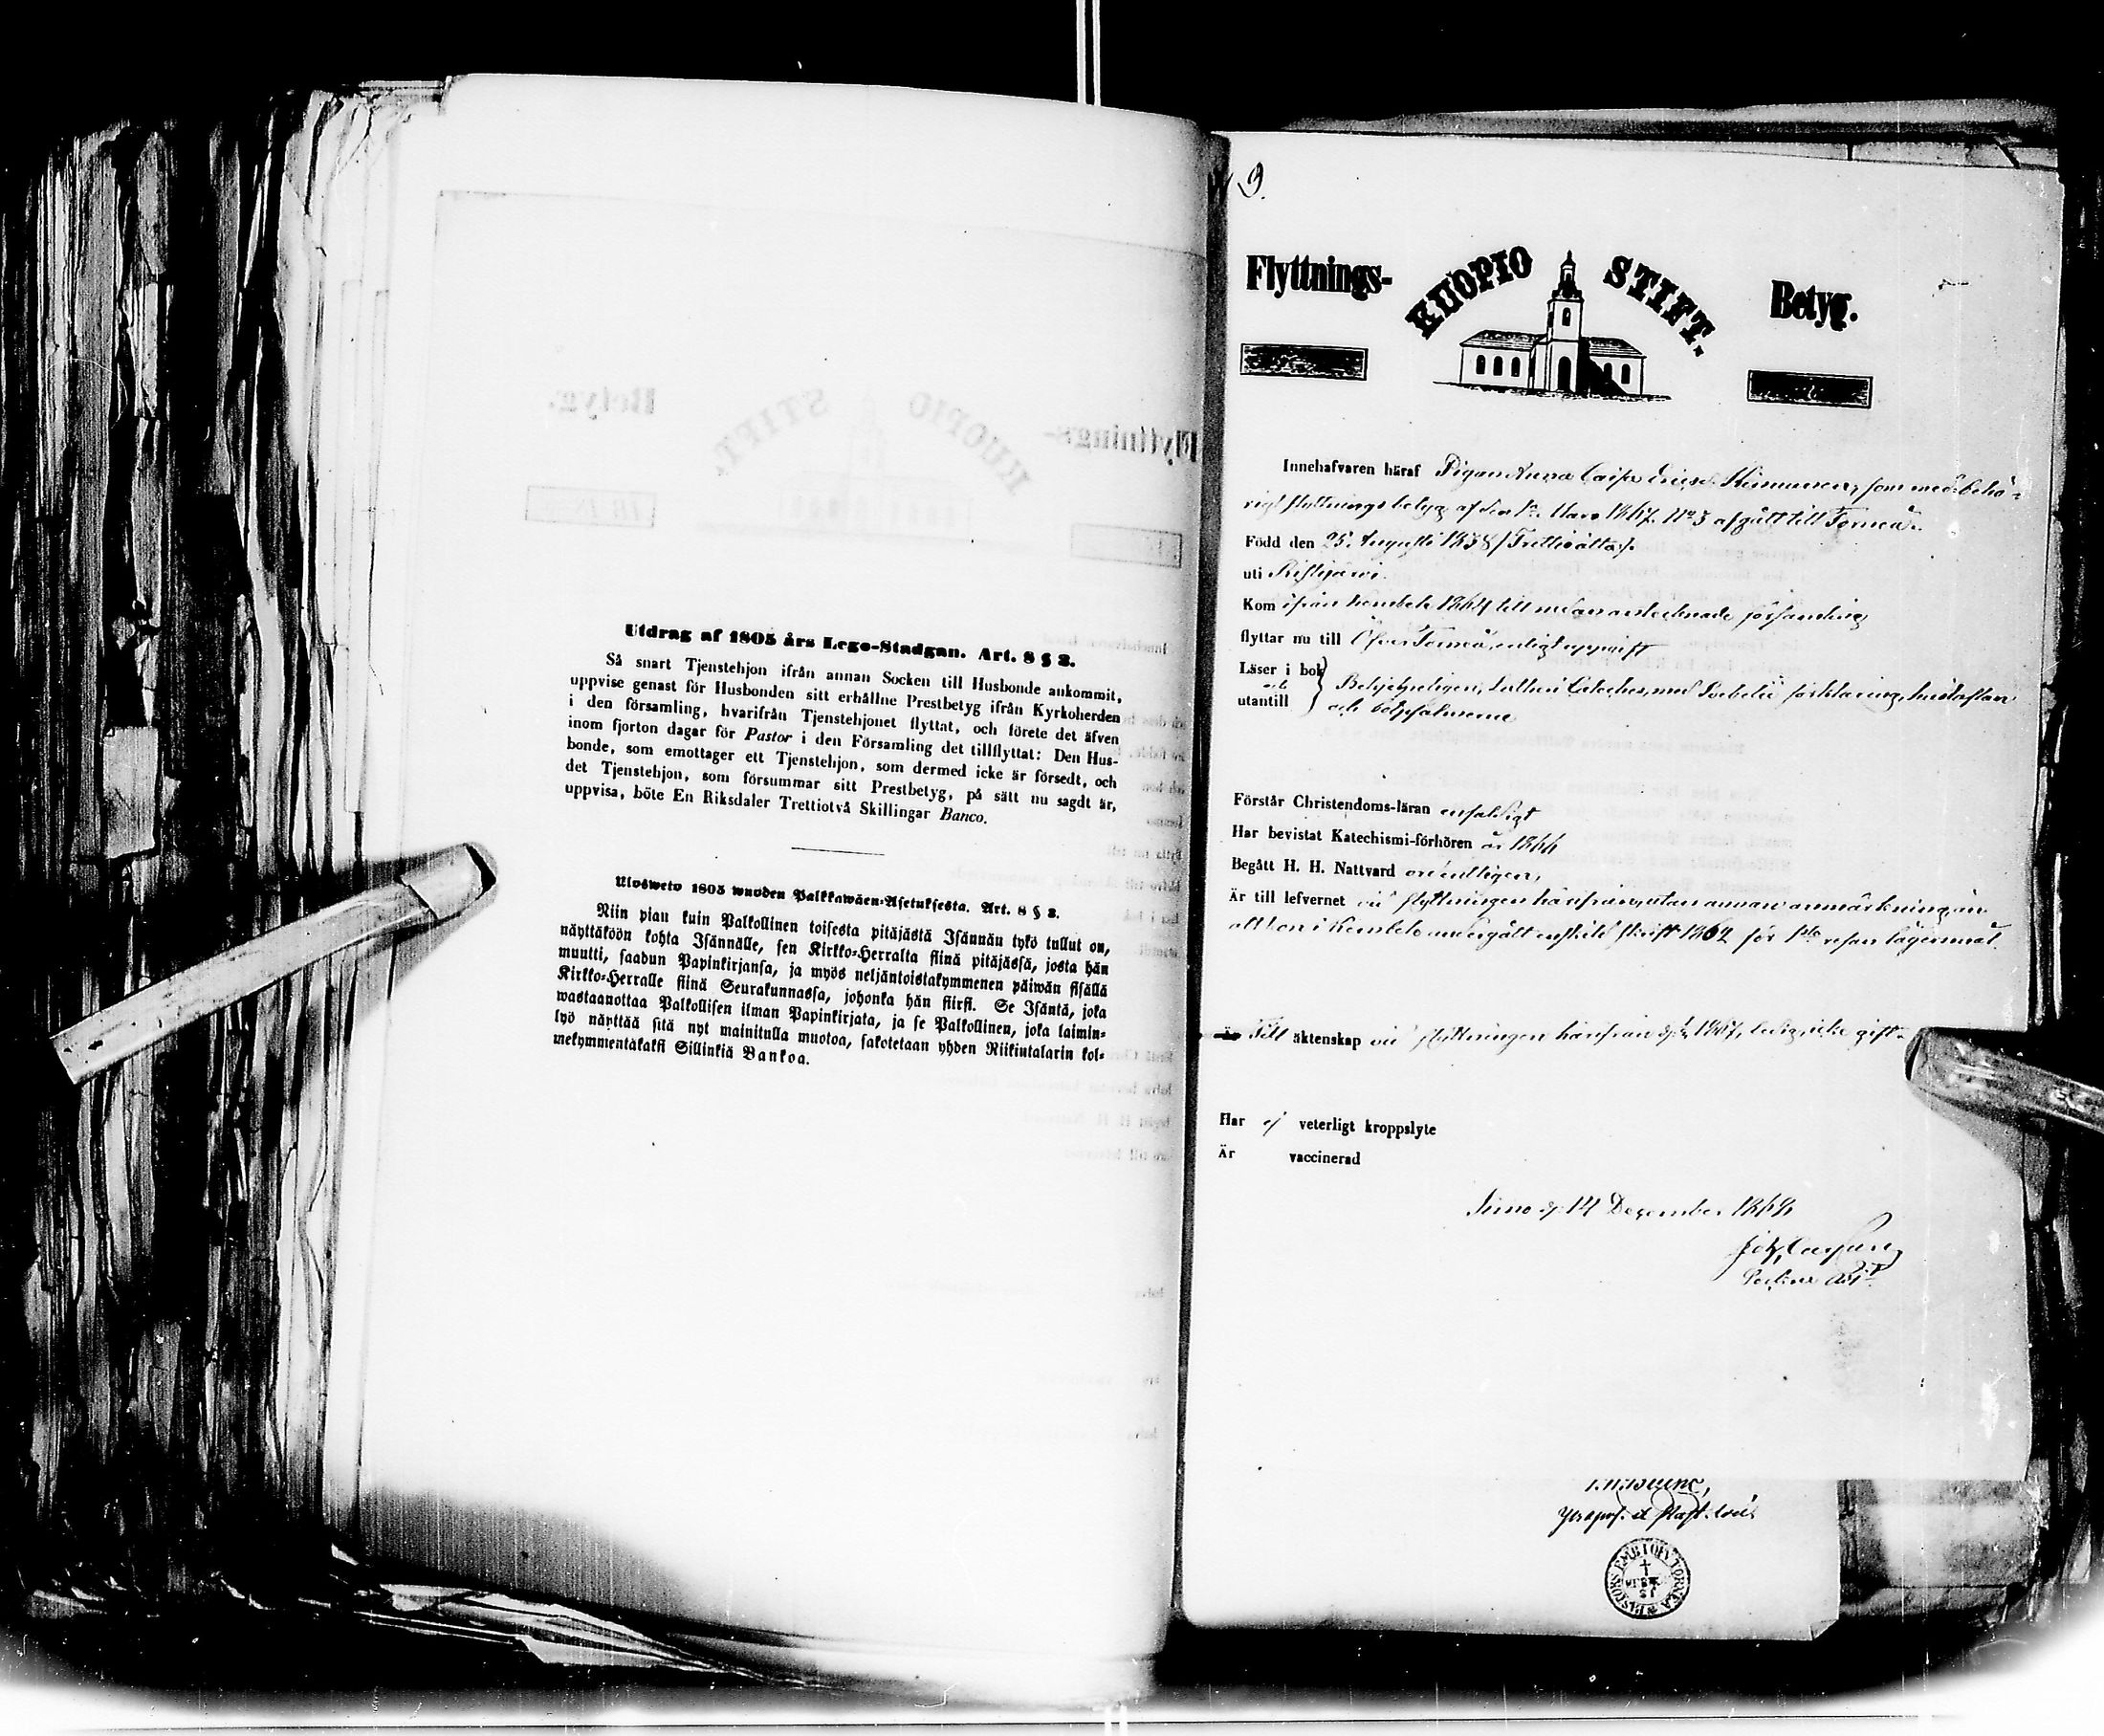 Utdrag af 1805 års Lego-Stadgan. Art. 8 § 3.
Så snart Tjenstehjon ifrån annan Socken till Husbonde ankommit,
uppvise genast för Husbonden sitt erhållne Prestbetyg ifrån Kyrkoherden
i den församling, hvarifrån Tjenstehjonet flyttat, och förete det äfven
inom fjorton dagar för Pastor i den Församling det tillflyttat: Den Hus-
bonde, som emottager ett Tjenstehjon, som dermed icke är försedt, och
det Tjenstehjon, som försummar sitt Prestbetyg, på sätt nu sagdt är,
uppvisa, böte En Riksdaler Trettiotvå Skillingar Banco.
Ulosweto 1805 wuoden Palkkawäen-Asetuksesta. Art. 8 § 3.
Niin pian kuin Palkollinen toisesta pitäjästä Isännän tykö tullut on,
näyttäköön kohta Isännälle, sen Kirkko-Herralta siinä pitäjässä, josta hän
muutti, saadun Papinkirjansa, ja myös neljäntoistakymmenen päiwän sisällä
Kirkko-Herralle siinä Seurakunnassa, johonka hän siirsi. Se Isäntä, joka
wastaanottaa Palkollisen ilman Papinkirjata, ja se Palkollinen, joka laimin-
lyö näyttää sitä nyt mainitulla muotoa, sakotetaan yhden Riikintalarin kol-
mekymmentäkaksi Sillinkiä Bankoa.
9.
Flyttnings- KUOPIO STIFT. Betyg.
Innehafvaren häraf Pigan Anna Caisa Ericsd. Kinnunen, som med behö-
rigt flyttningsbetyg af den Mars 1867 No 5 afgått till Torneå.
Född den 25. Augusti 1838 /:Trettioåtta:/.
uti Ristijärvi.
Kom ifrån Kembele 1864 till nedanantecknade församling
flyttar nu till Öfver Torneå, enligt uppgift
Läser i bok
och
utantill
Lutheri Cateches, med Svebelii förklaring, hustaflan
och botpsalmerne
Förstår Christendoms-läran enfaldigt
Har bevistat Katechismi-förhören år 1866
Begått H. H. Nattvard ordentligen,
Är till lefvernet vid flyttningen härifrån, utan annan anmärkning än
att hon i Kembele undergått enskild skrift 1862 för 1sta resan lägersmål.
Till äktenskap vid flyttningen härifrån 1867, ledig, icke gift.
Har ej veterligt kroppslyte
Är vaccinerad
Simo d. 14 December 1868